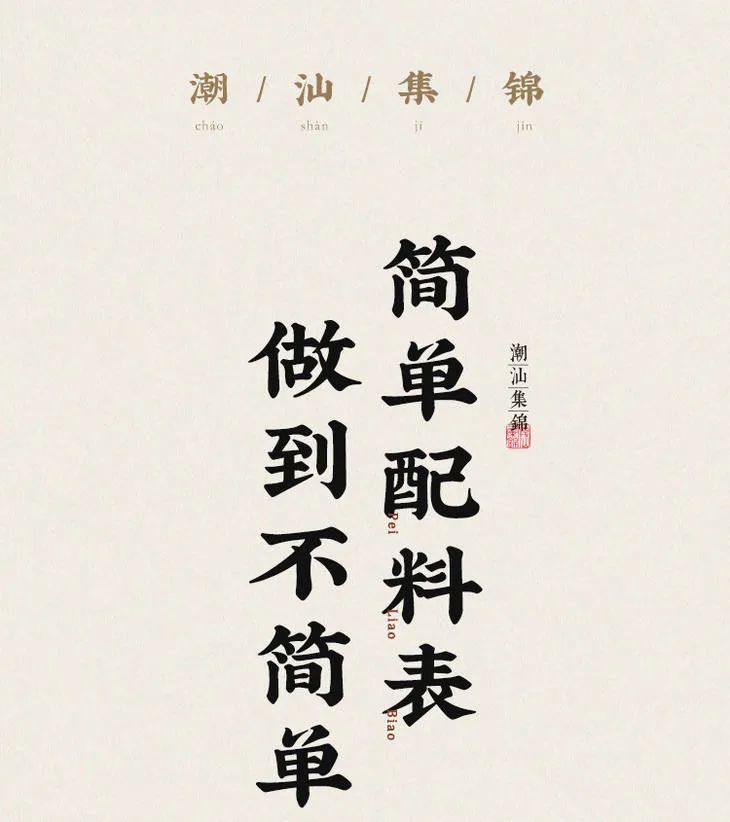 潮 / 汕 / 集 / 锦
cháo shàn jí jǐn
潮汕集錦
简单配料表
Pei Liao Biao
做到不简单